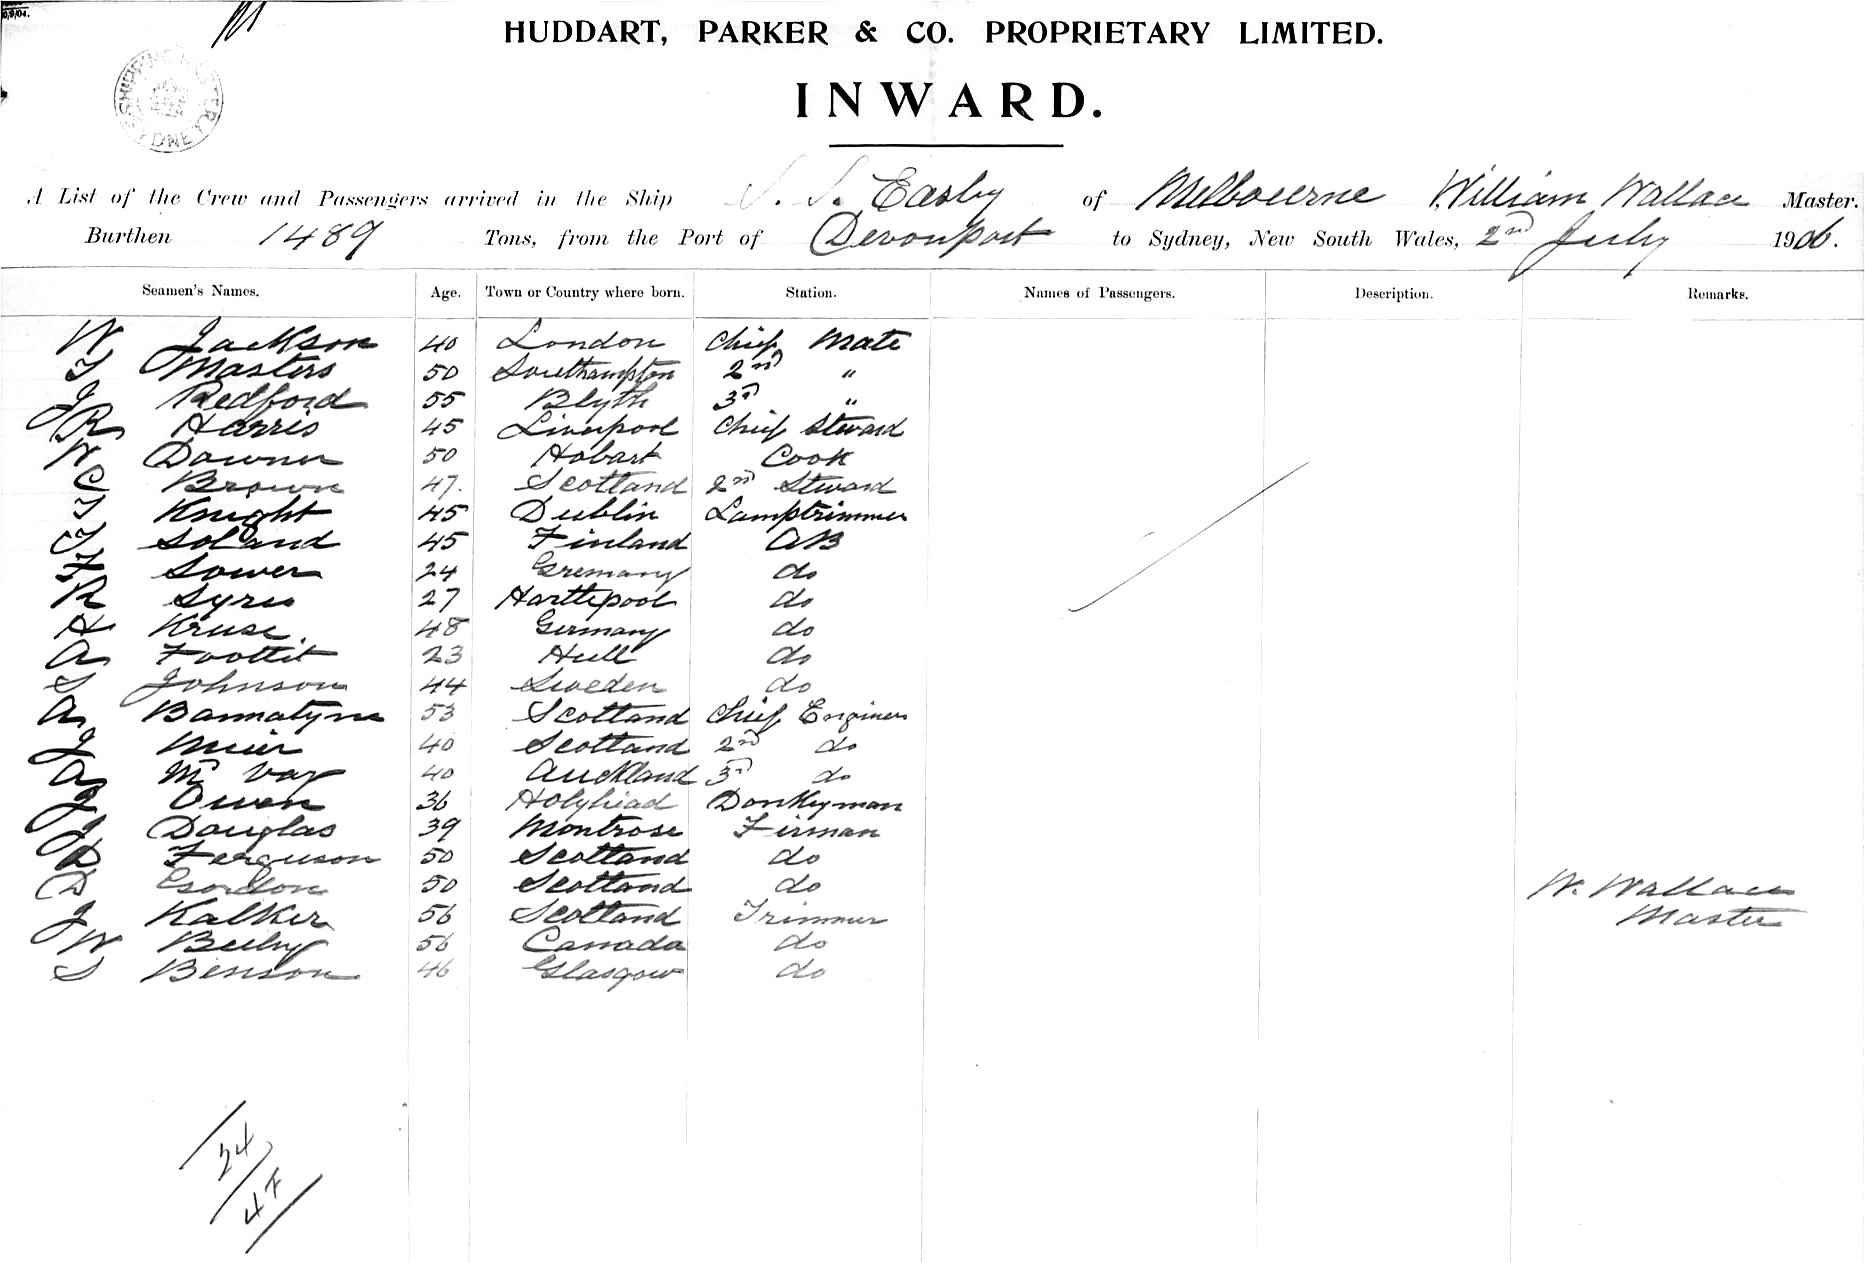 HUDDART, PARKER & CO. PROPRIETARY LIMITED.
INWARD.
A List of the Crew and Passengers arrived in the Ship S. S. Easby of Melbourne William Wallace Master.
Burthen 1489 Tons, from the Port of Devonport to Sydney, New South Wales, 2nd July 1906.
Seamen's Names. Age. Town or Country where born. Station. Names of Passengers. Description. Remarks.
W Jackson 40 London Chief Mate
T Masters 50 Southampton 2nd "
J Redford 55 Blyth 3rd "
R Harris 45 Liverpool Chief Steward
W Downer 50 Hobart Cook
C Brown 47. Scotland 2nd Steward
T Knight 45 Dublin Lamptrimmer
T Soland 45 Finland AB
F Sower 24 Gremany do
R Syres 27 Hartlepool do
H Kruse 48 Germany do
A Foottit 23 Hull do
S Johnson 44 Sweden do
A Bannatyne 53 Scotland Chief Engineer
J Muir 40 Scotland 2nd do
A Mc Vay 40 Auckland 3rd do
J Owen 36 Holyhead Donkeyman
J Douglas 39 Montrose Firman
D Ferguson 50 Scotland do
D Gordon 50 Scotland do W. Wallace
J Kalker 56 Scotland Trimmer Master
W 56 Canada do
S Benson 46 Glasgow do
24
47